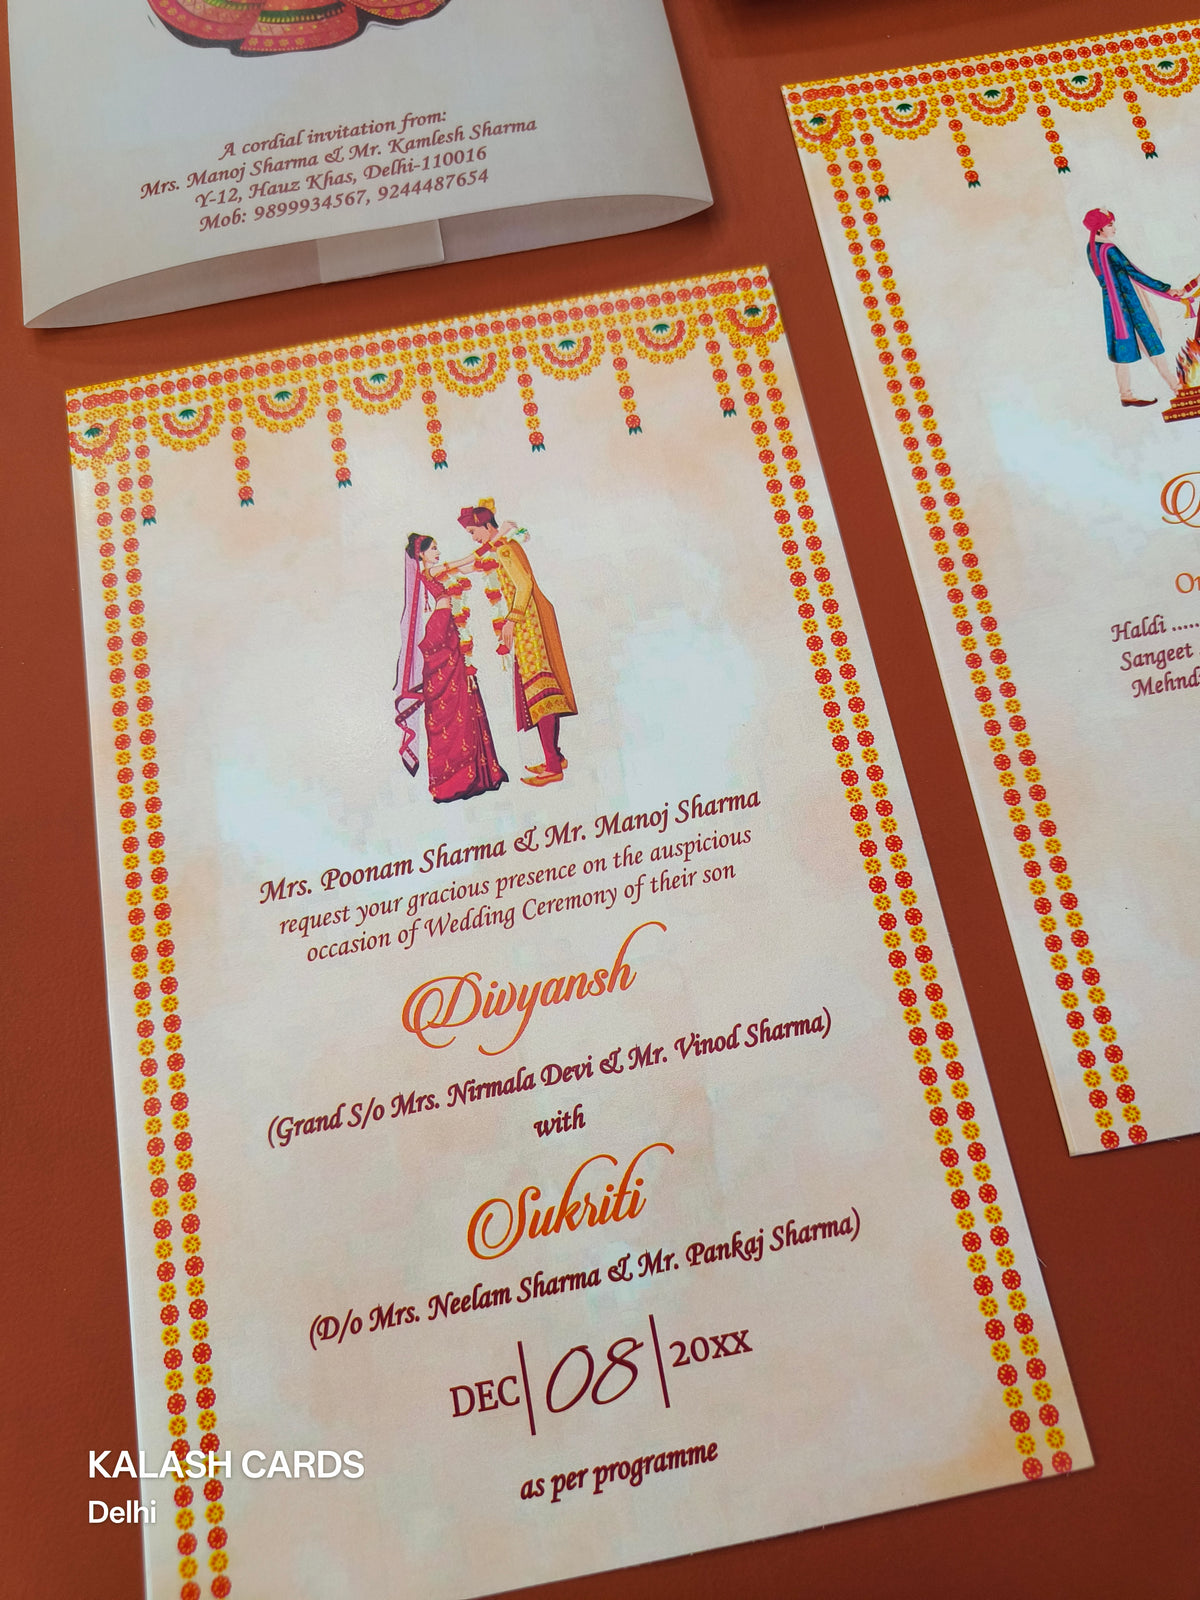 A cordial invitation from:
Mrs. Manoj Sharma & Mr. Kamlesh Sharma
Y-12, Hauz Khas, Delhi-110016
Mob: 9899934567, 9244487654
Mrs. Poonam Sharma & Mr. Manoj Sharma
request your gracious presence on the auspicious
occasion of Wedding Ceremony of their son
Divyansh
(Grand S/o Mrs. Nirmala Devi & Mr. Vinod Sharma)
with
Sukriti
(D/o Mrs. Neelam Sharma & Mr. Pankaj Sharma)
DEC|08|20XX
as per programme
Haldi .....
Sangeet
KALASH CARDS
Delhi